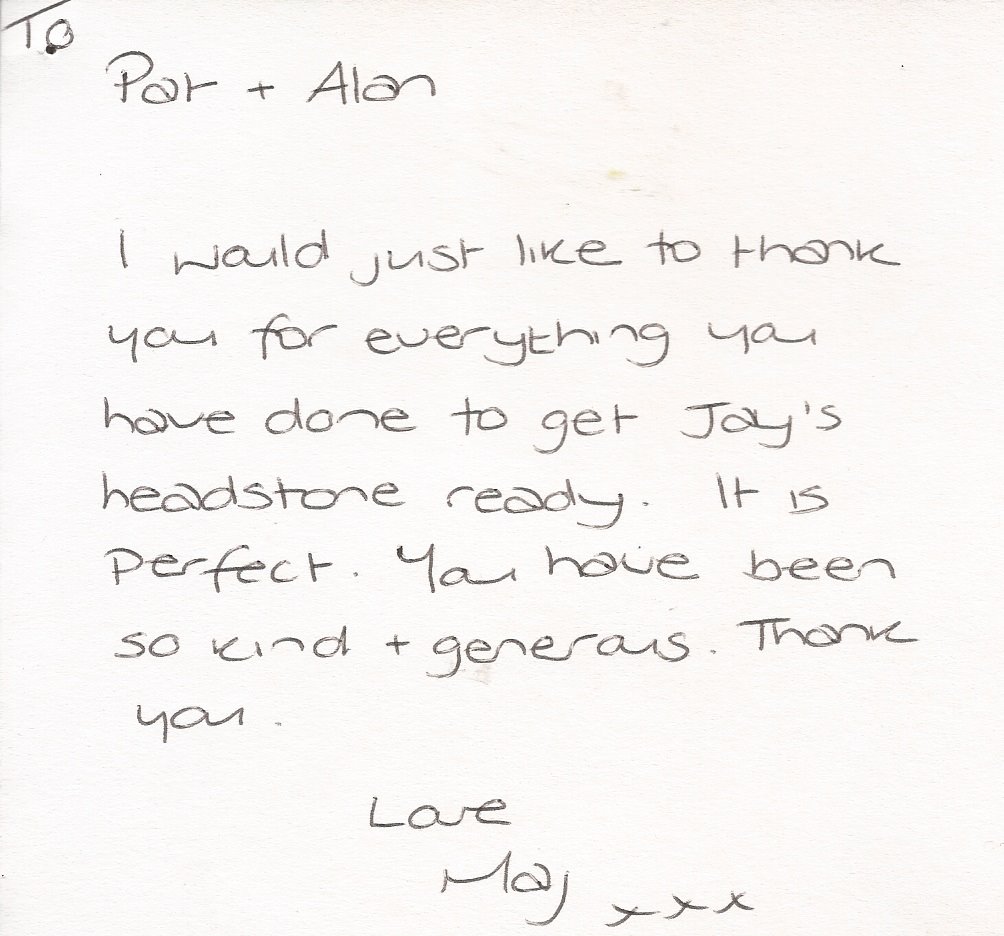 To
Pat + Alan
I would just like to thank
you for everything you
have done to get Jay's
headstone ready. It is
perfect. You have been
so kind + generous. Thank
you.
Love
May xxx